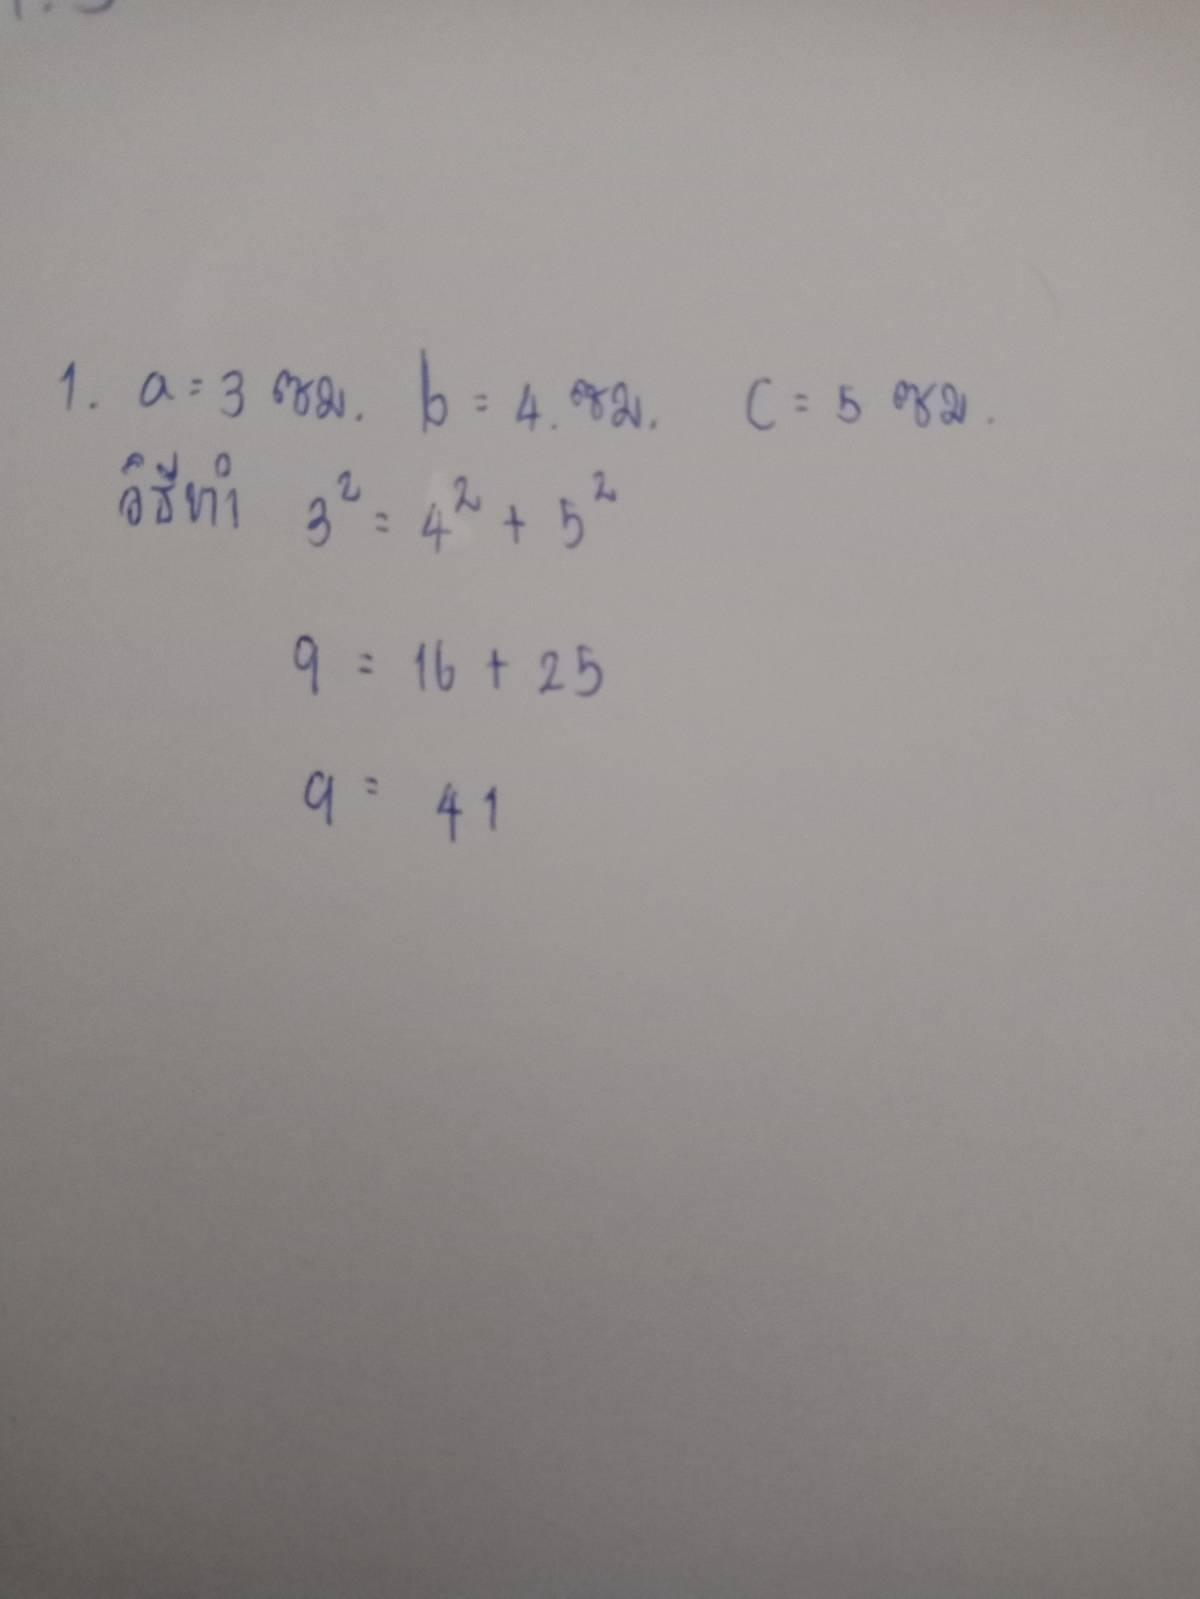 1. a = 3 ซม. b = 4. ซม. c = 5 ซม.
วิธีทำ 3² = 4² + 5²
9 = 16 + 25
9 = 41